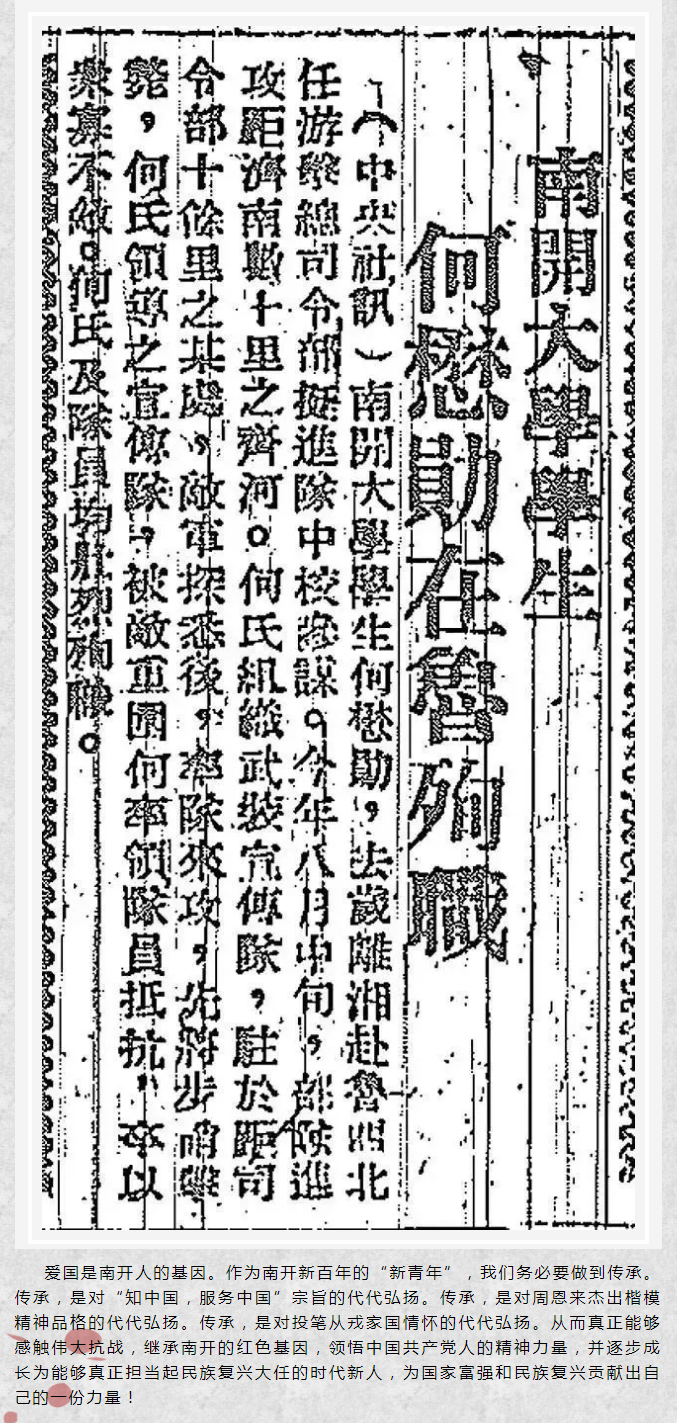 南開大學學生
何懋勛在魯殉職
（中央社訊）南開大學學生何懋勛，去歲離湘赴魯西北
任游擊總司令部挺進隊中校參謀。今年八月中旬，部隊進
攻距濟南數十里之齊河。何氏組織武裝宣傳隊，駐於距司
令部十餘里之某處，敵軍探悉後，率隊來攻，先將步哨擊
斃，何氏領導之宣傳隊，被敵重圍何率領隊員抵抗，卒以
衆寡不敵。何氏及隊員均壯烈殉難。
爱国是南开人的基因。作为南开新百年的“新青年”，我们务必要做到传承。
传承，是对“知中国，服务中国”宗旨的代代弘扬。传承，是对周恩来杰出楷模
精神品格的代代弘扬。传承，是对投笔从戎家国情怀的代代弘扬。从而真正能够
感触伟大抗战，继承南开的红色基因，领悟中国共产党人的精神力量，并逐步成
长为能够真正担当起民族复兴大任的时代新人，为国家富强和民族复兴贡献出自
己的一份力量！